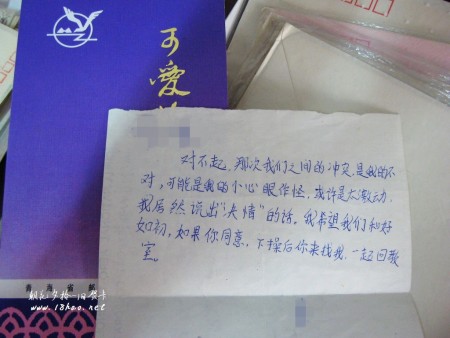 可爱
对不起，那次我们之间的冲突，是我的不
对，可能是我的小心眼作怪，或许是太激动，
我居然说出“决情”的话。我希望我们和好
如初，如果你同意，下操后你来找我，一起回教
室。
青海省邮
www.18hao.net